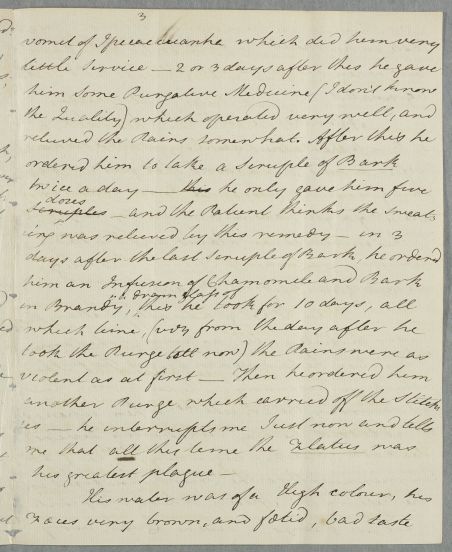 3
vomit of Ipecacuanha which did him very
little Service — 2 or 3 days after this he gave
him some Purgative Medicine (I don't know
the Quality) which operated very well, and
relieved the Pains somewhat. After this he
ordered him to take a Scruple of Bark
twice a day — this he only gave him five
doses
Scruples — and the Patient thinks the Sweat-
ing was relieved by this remedy — in 3
days after the last Scruple of Bark, he ordered
him an Infusion of Chamomile and Bark
in Brandy, this he took for 10 days, all
which time, (viz from the day after he
took the Purge till now) the Pains were as
violent as at first — Then he ordered him
another Purge which carried off the Stitch
es — he interrupts me Just now and tells
me that all this time the Flatus was
his greatest plague —
His water was of a High colour, his
Fæces very brown, and fœtid, bad taste